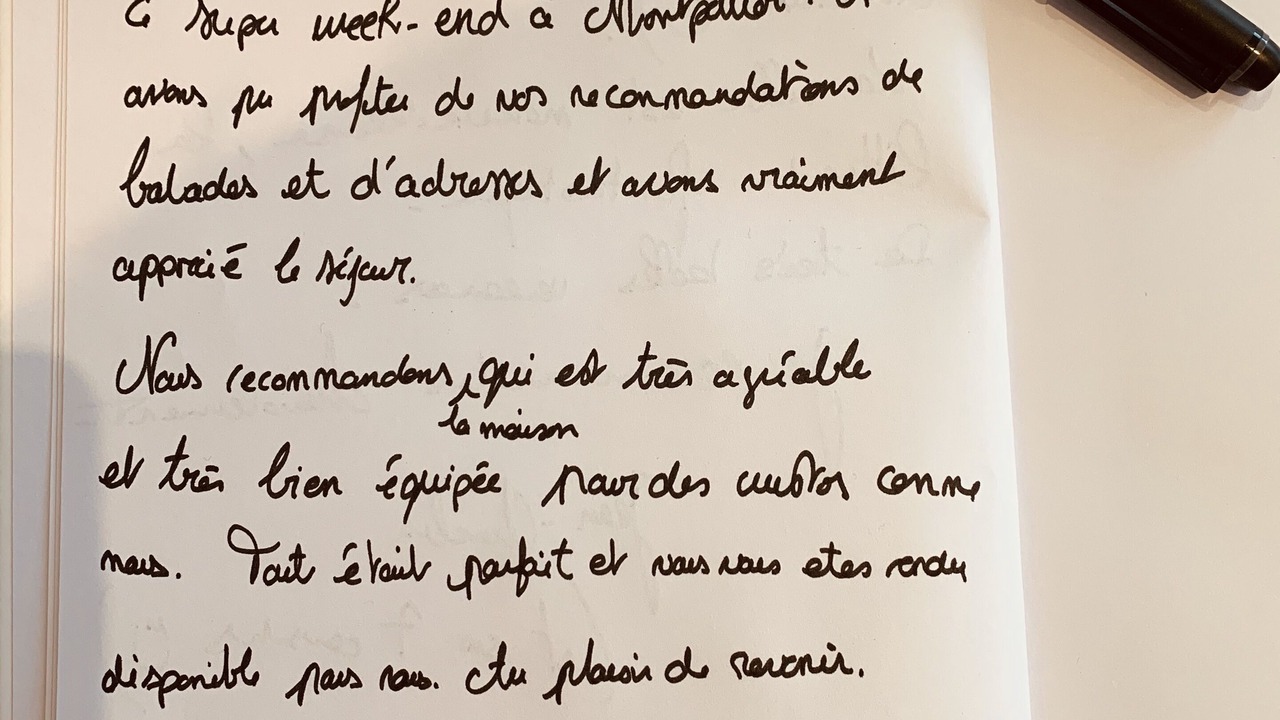 super week-end à Montpellier.
avons pu profiter de vos recommandations de
balades et d'adresses et avons vraiment
apprécié le séjour.
Nous recommandons, qui est très agréable
la maison
et très bien équipée pour des comme
nous. Tout était parfait et vous vous etes rendu
disponible pour nous. Au plaisir de revenir.